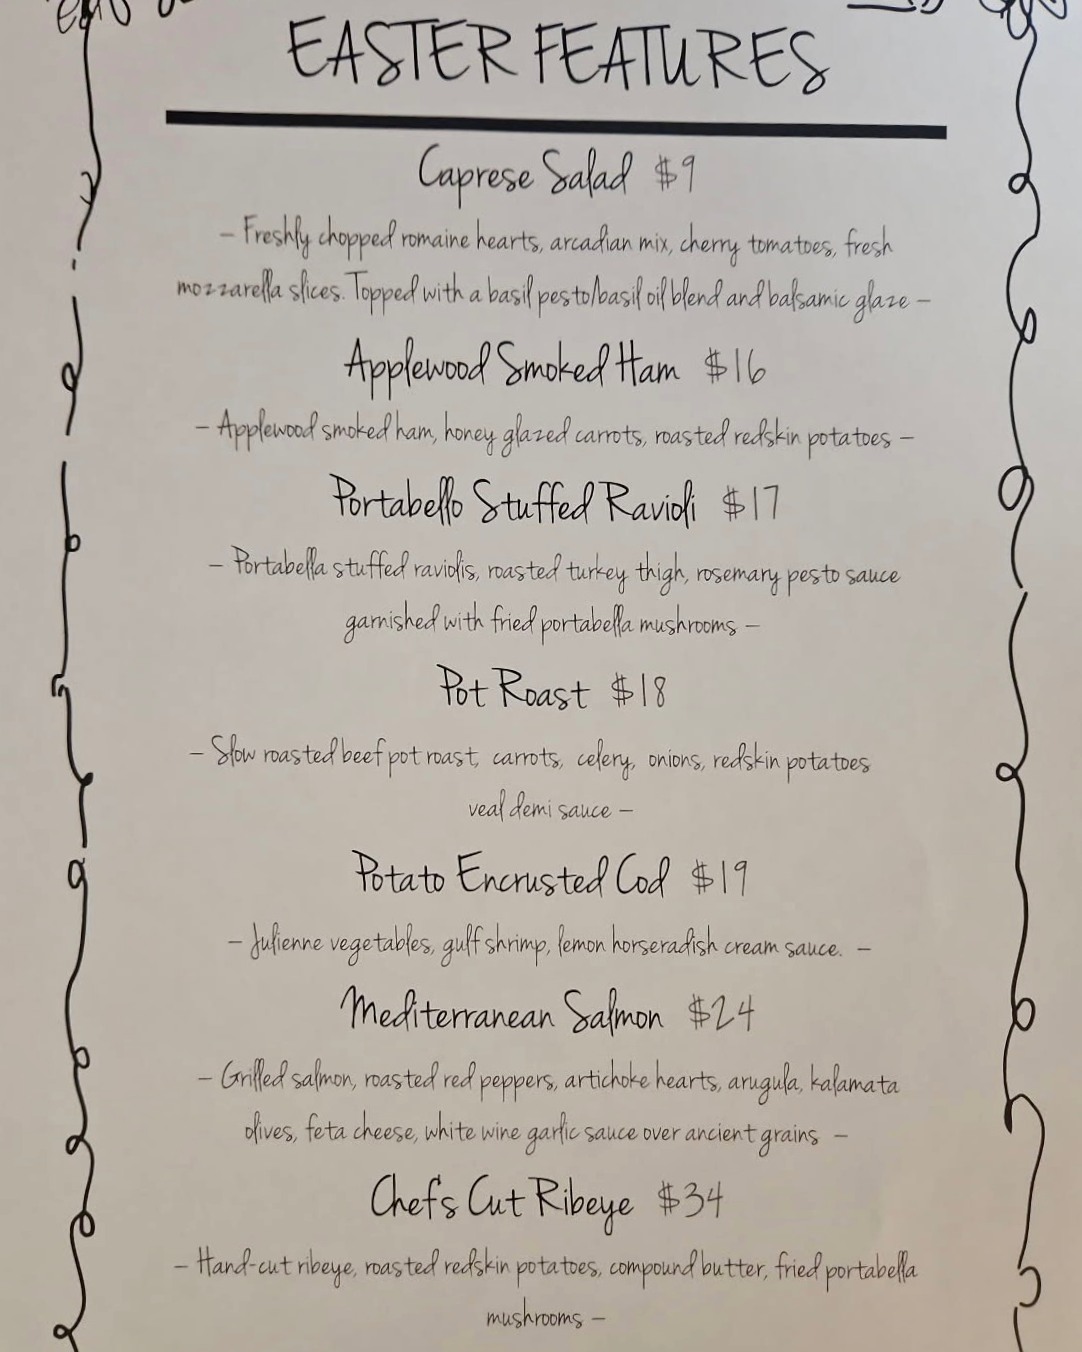 EASTER FEATURES
Caprese Salad $9
– Freshly chopped romaine hearts, arcadian mix, cherry tomatoes, fresh
mozzarella slices. Topped with a basil pesto/basil oil blend and balsamic glaze –
Applewood Smoked Ham $16
– Applewood smoked ham, honey glazed carrots, roasted redskin potatoes –
Portabello Stuffed Ravioli $17
– Portabella stuffed raviolis, roasted turkey thigh, rosemary pesto sauce
garnished with fried portabella mushrooms –
Pot Roast $18
– Slow roasted beef pot roast, carrots, celery, onions, redskin potatoes
veal demi sauce –
Potato Encrusted Cod $19
– Julienne vegetables, gulf shrimp, lemon horseradish cream sauce. –
Mediterranean Salmon $24
– Grilled salmon, roasted red peppers, artichoke hearts, arugula, kalamata
olives, feta cheese, white wine garlic sauce over ancient grains –
Chef's Cut Ribeye $34
– Hand-cut ribeye, roasted redskin potatoes, compound butter, fried portabella
mushrooms –